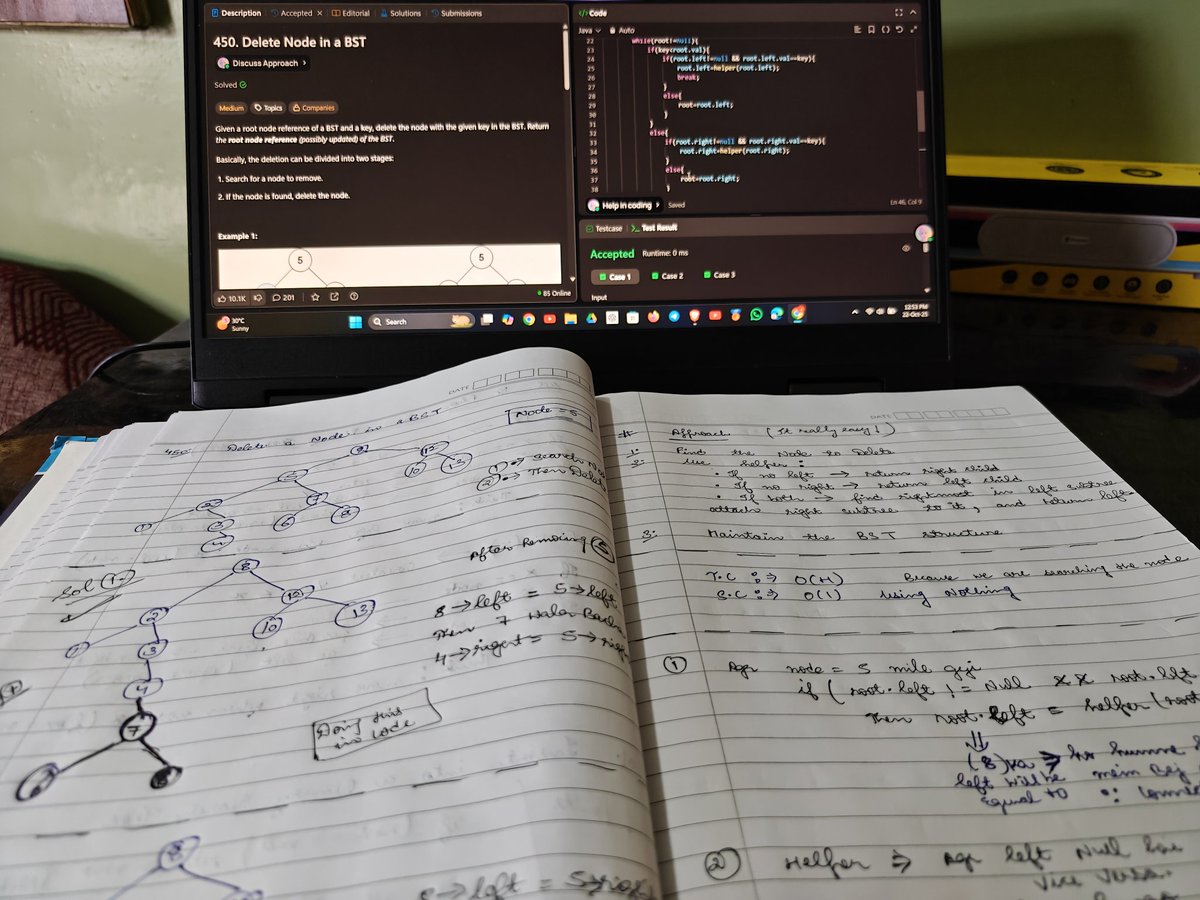 Description
Accepted
Editorial
Solutions
Submissions
450. Delete Node in a BST
Discuss Approach
Solved
Medium
Topics
Companies
Given a root node reference of a BST and a key, delete the node with the given key in the BST. Return
the root node reference (possibly updated) of the BST.
Basically, the deletion can be divided into two stages:
1. Search for a node to remove.
2. If the node is found, delete the node.
Example 1:
5
5
10.1K
201
85 Online
</>Code
Java
Auto
22 while(root!=null){
23 if(key<root.val){
24 if(root.left!=null && root.left.val==key){
25 root.left=helper(root.left);
26 break;
27 }
28 else{
29 root=root.left;
30 }
31 }
32 else{
33 if(root.right!=null && root.right.val==key){
34 root.right=helper(root.right);
35 }
36 else{
37 root=root.right;
38 }
Help in coding
Saved
Ln 46, Col 9
Testcase
Test Result
Accepted Runtime: 0 ms
Case 1
Case 2
Case 3
Input
30°C
Sunny
Search
12:53 PM
22-Oct-25
DATE
450. Delete a Node in a BST
Node = 5
8
12
5
10 13
2
7
1
3
6
4
① Search Nod
② Then Delet
Sol (1.
8
2
12
10 13
3
4
7
After Removing 5
8→left = 5→left
Then 7
4→right = 5→rig
Doing this
in code
8
8→left = 5→righ
DATE
# Approach (It really easy!)
1: Find the Node to Delete
2: Use helper:
• If no left → return right child
• If no right → return left child
• If both → find rightmost in left subtree
attach right subtree to it, and return left
3: Maintain the BST structure
T.C :⇒ O(H) Because we are searching the node
S.C :⇒ O(1) Using Nothing
① Agr node = 5 mile gyi
if (root.left != Null && root.left
Then root.left = helper(root
⇓
(8)ka ⇒
left will be
equal to
② Helper ⇒ Agr left Null
Vice Versa.